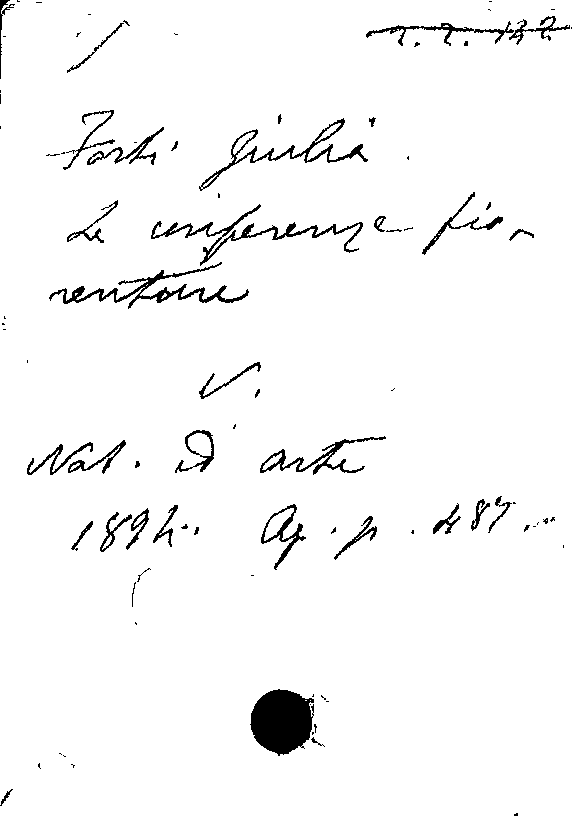 Forti Giulia.
Le conferenze fio-
rentine
V.
Nat. ed arte
1894. Ag. p. 487.